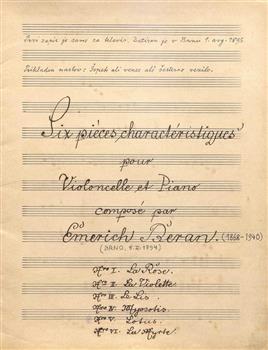 Prvi zapis je samo za klavir. Datiran je v Brnu 1. avg. 1895
Prikladen naslov: Šopek ali venec ali
Six pièces charactéristiques
pour
Violoncelle et Piano
composé par
Emerich Beran. (1868-1940)
(BRNO, 5.I.1894)
Nro I. La Rose.
Nro II. La Violette
Nro III. Le Lis.
Nro IV. Myosotis
Nro V. Lotus.
Nro VI. La Myrte.